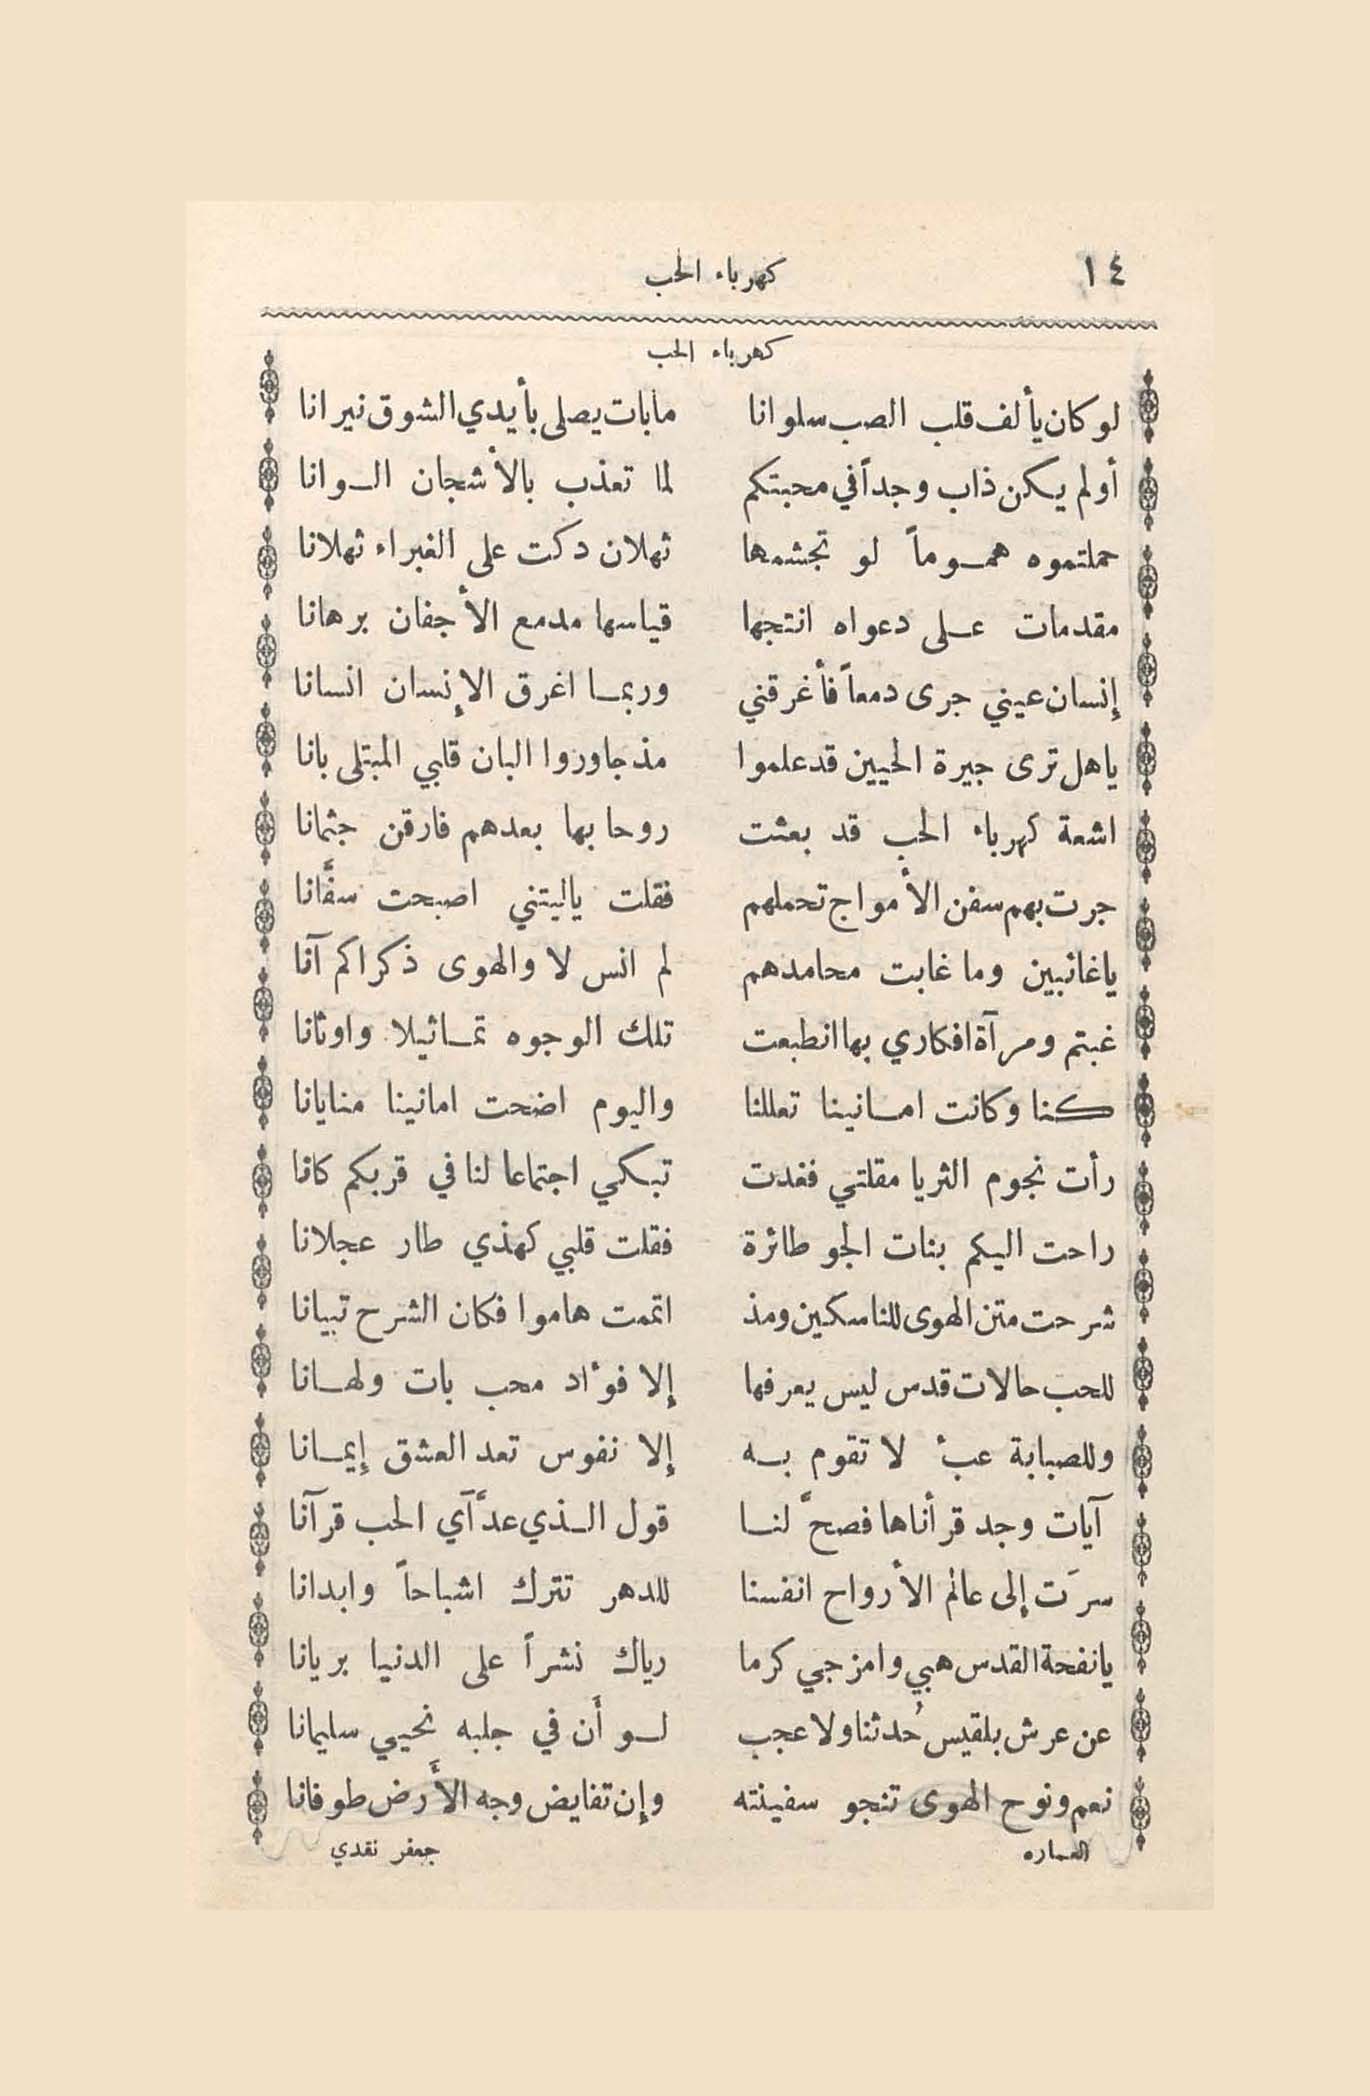 ١٤ كهرباء الحب
كهرباء الحب
لو كان يألف قلب الصب سلوانا مابات يصلى بأيدي الشوق نيرانا
أولم يكن ذاب وجداً في محبتكم لما تعذب بالأشجان الوانا
حملتموه هموماً لو تجشمها ثهلان دكت على الغبراء ثهلانا
مقدمات على دعواه انتجها قياسها مدمع الأجفان برهانا
إنسان عيني جرى دمعاً فأغرقني وربما اغرق الإنسان انسانا
ياهل ترى جيرة الحيين قد علموا مذ جاوروا البان قلبي المبتلى بانا
اشعة كهرباء الحب قد بعثت روحا بها بعدهم فارقن جثمانا
جرت بهم سفن الأمواج تحملهم فقلت ياليتني اصبحت سفَّانا
ياغائبين وما غابت محامدهم لم انس لا والهوى ذكراكم آنا
غبتم ومرآة افكاري بها انطبعت تلك الوجوه تماثيلا واوثانا
كنا وكانت امانينا تعللنا واليوم اضحت امانينا منايانا
رأت نجوم الثريا مقلتي فغدت تبكي اجتماعا لنا في قربكم كانا
راحت اليكم بنات الجو طائرة فقلت قلبي كهذي طار عجلانا
شرحت متن الهوى للناسكين ومذ اتممت هاموا فكان الشرح تبيانا
للحب حالات قدس ليس يعرفها إلا فوءاد محب بات ولهانا
وللصبابة عبء لا تقوم به إلا نفوس تعد العشق إيمانا
آيات وجد قرأناها فصحَّ لنا قول الذي عدَّ آي الحب قرآنا
سرَت إلى عالم الأرواح انفسنا للدهر تترك اشباحاً وابدانا
يانفحة القدس هبي وامزجي كرما رياك نشراً على الدنيا بريانا
عن عرش بلقيس حُدثنا ولا عجب لو أَن في جلبه نحيي سليمانا
نعم ونوح الهوى تنجو سفينته وإن تفايض وجه الأَرض طوفانا
العماره جعفر نقدي